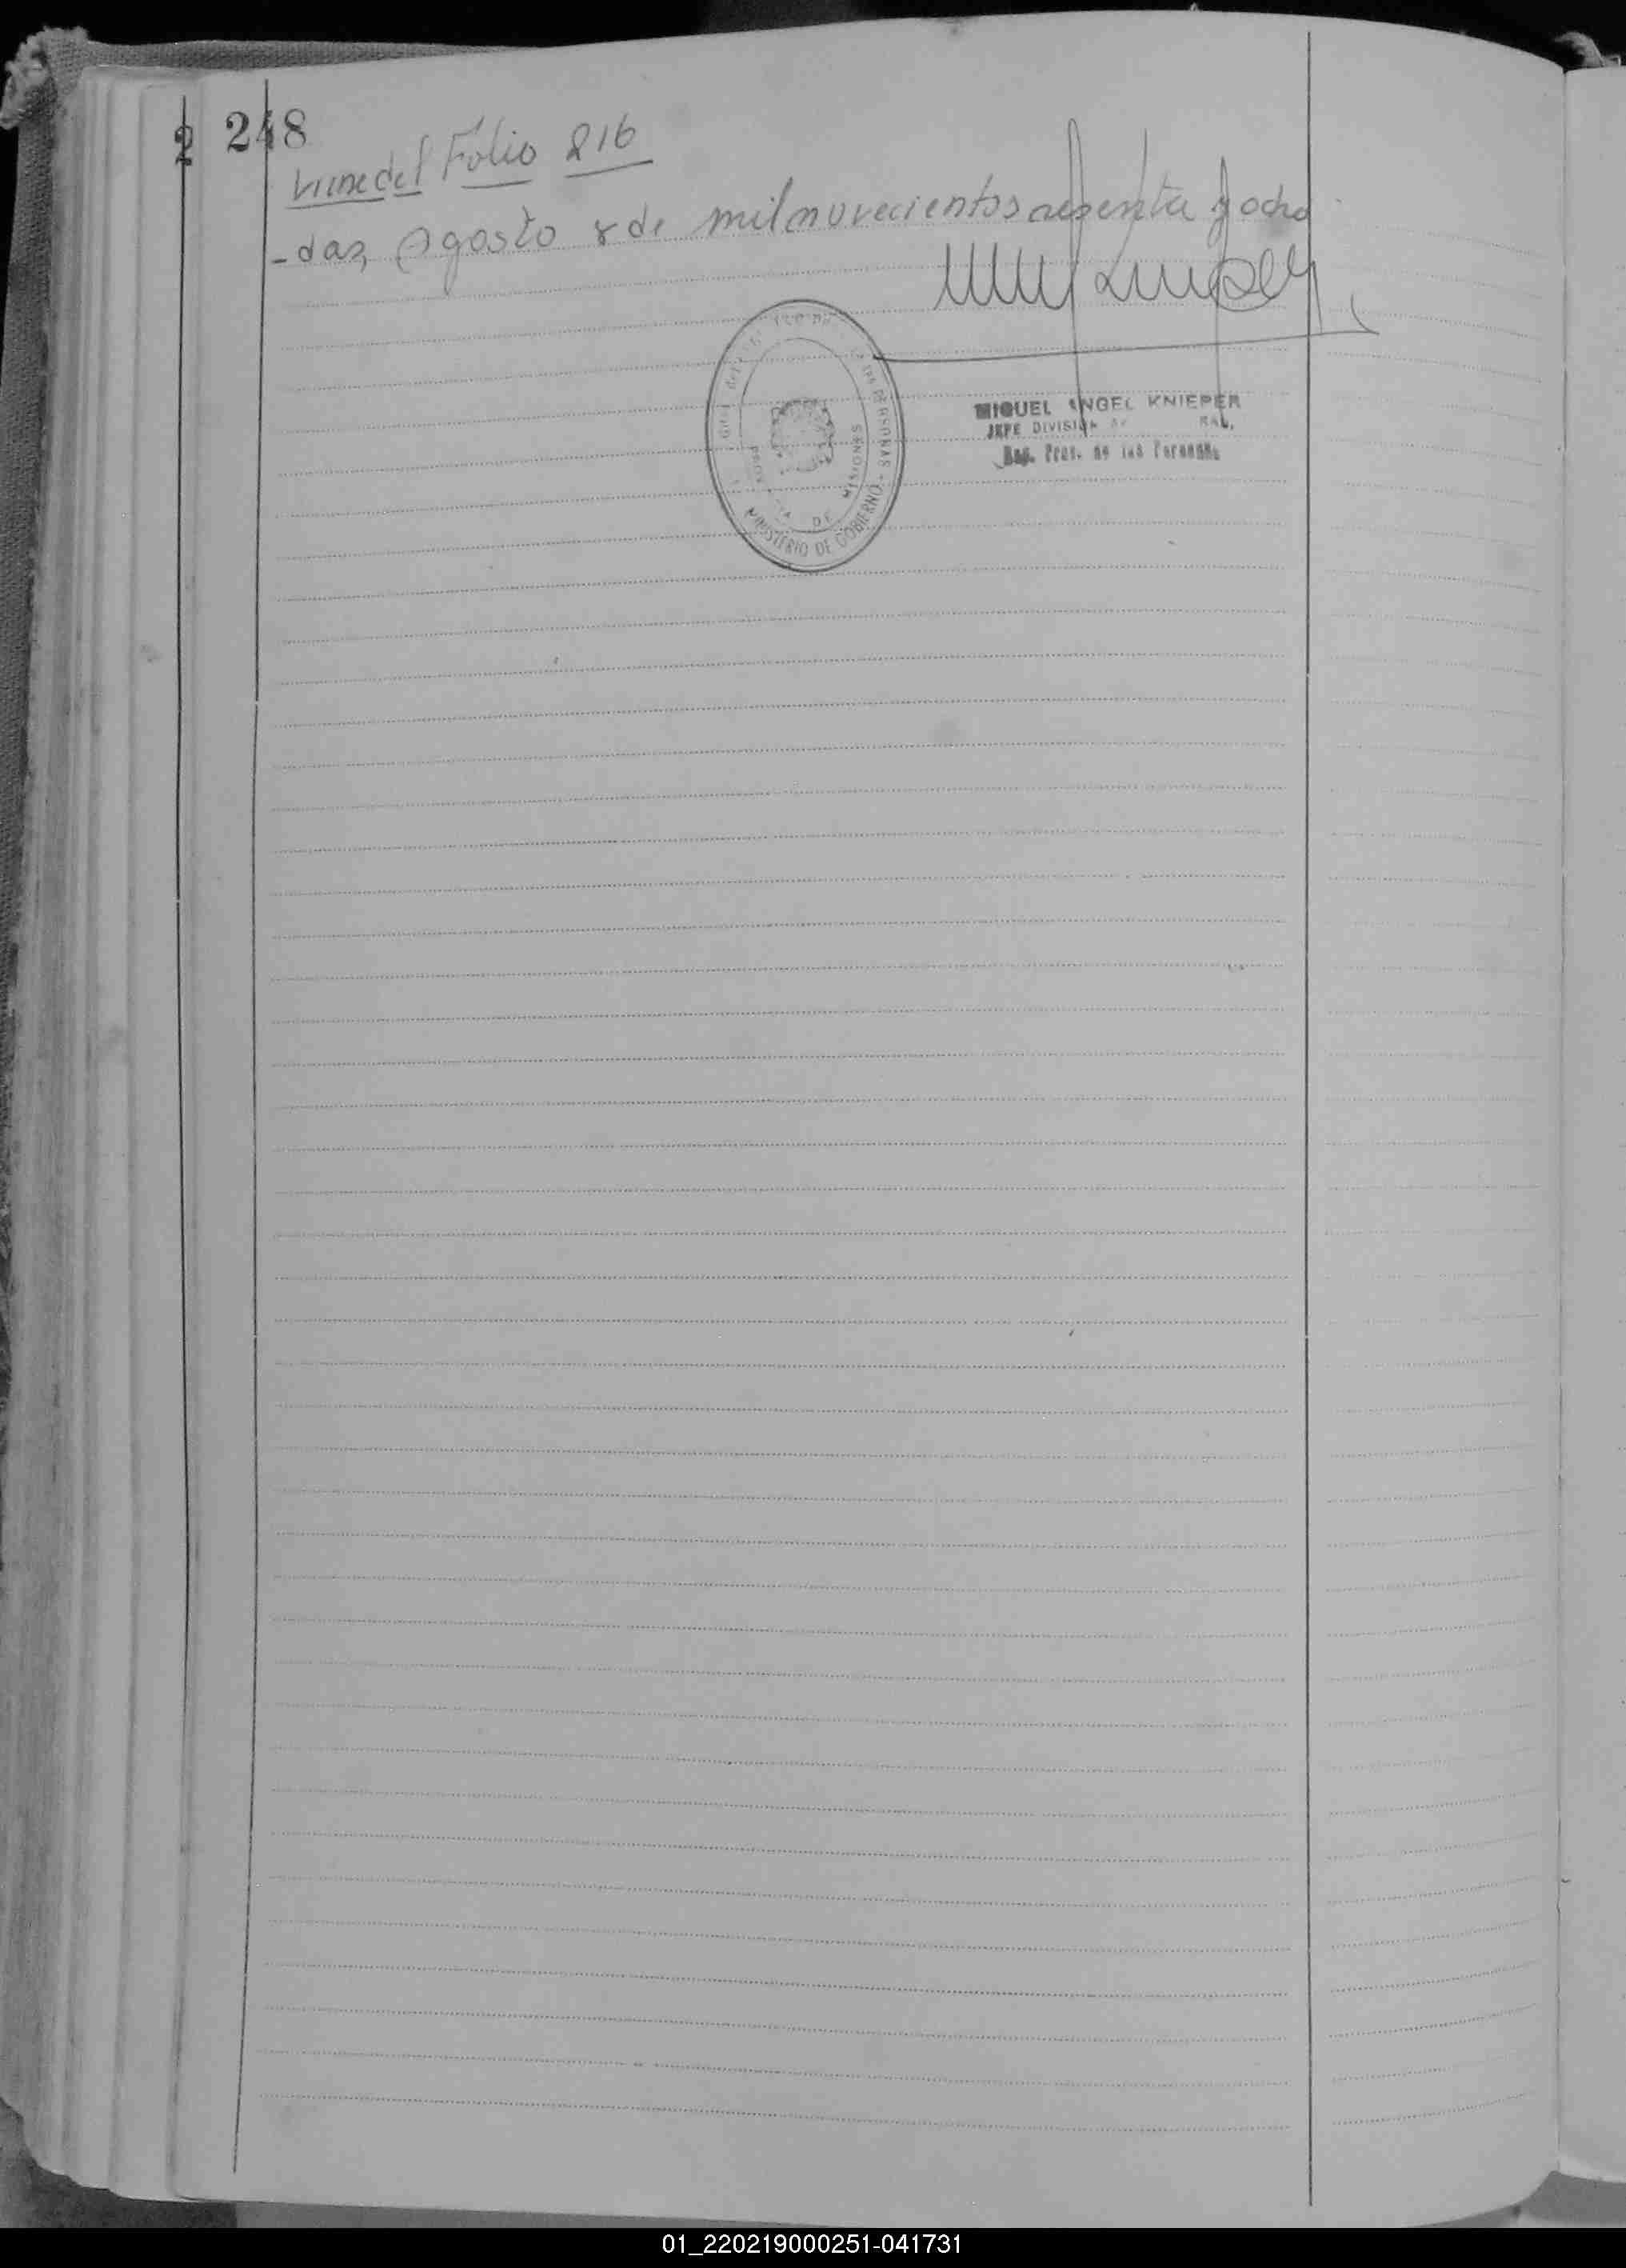 2 248
Viene del Folio 216
-das, Agosto 8 de mil novecientos sesenta y ocho
MIGUEL ANGEL KNIEPER
JEFE DIVISION
Reg. Prov. de las Personas
PERSONAS - MINISTERIO DE GOBIERNO
DE MISIONES
01_220219000251-041731